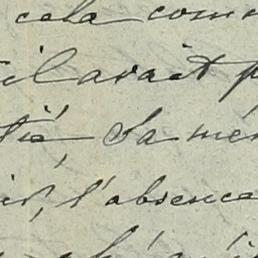 cela com
il avait p
tié, Sa mé
ir, l'absence